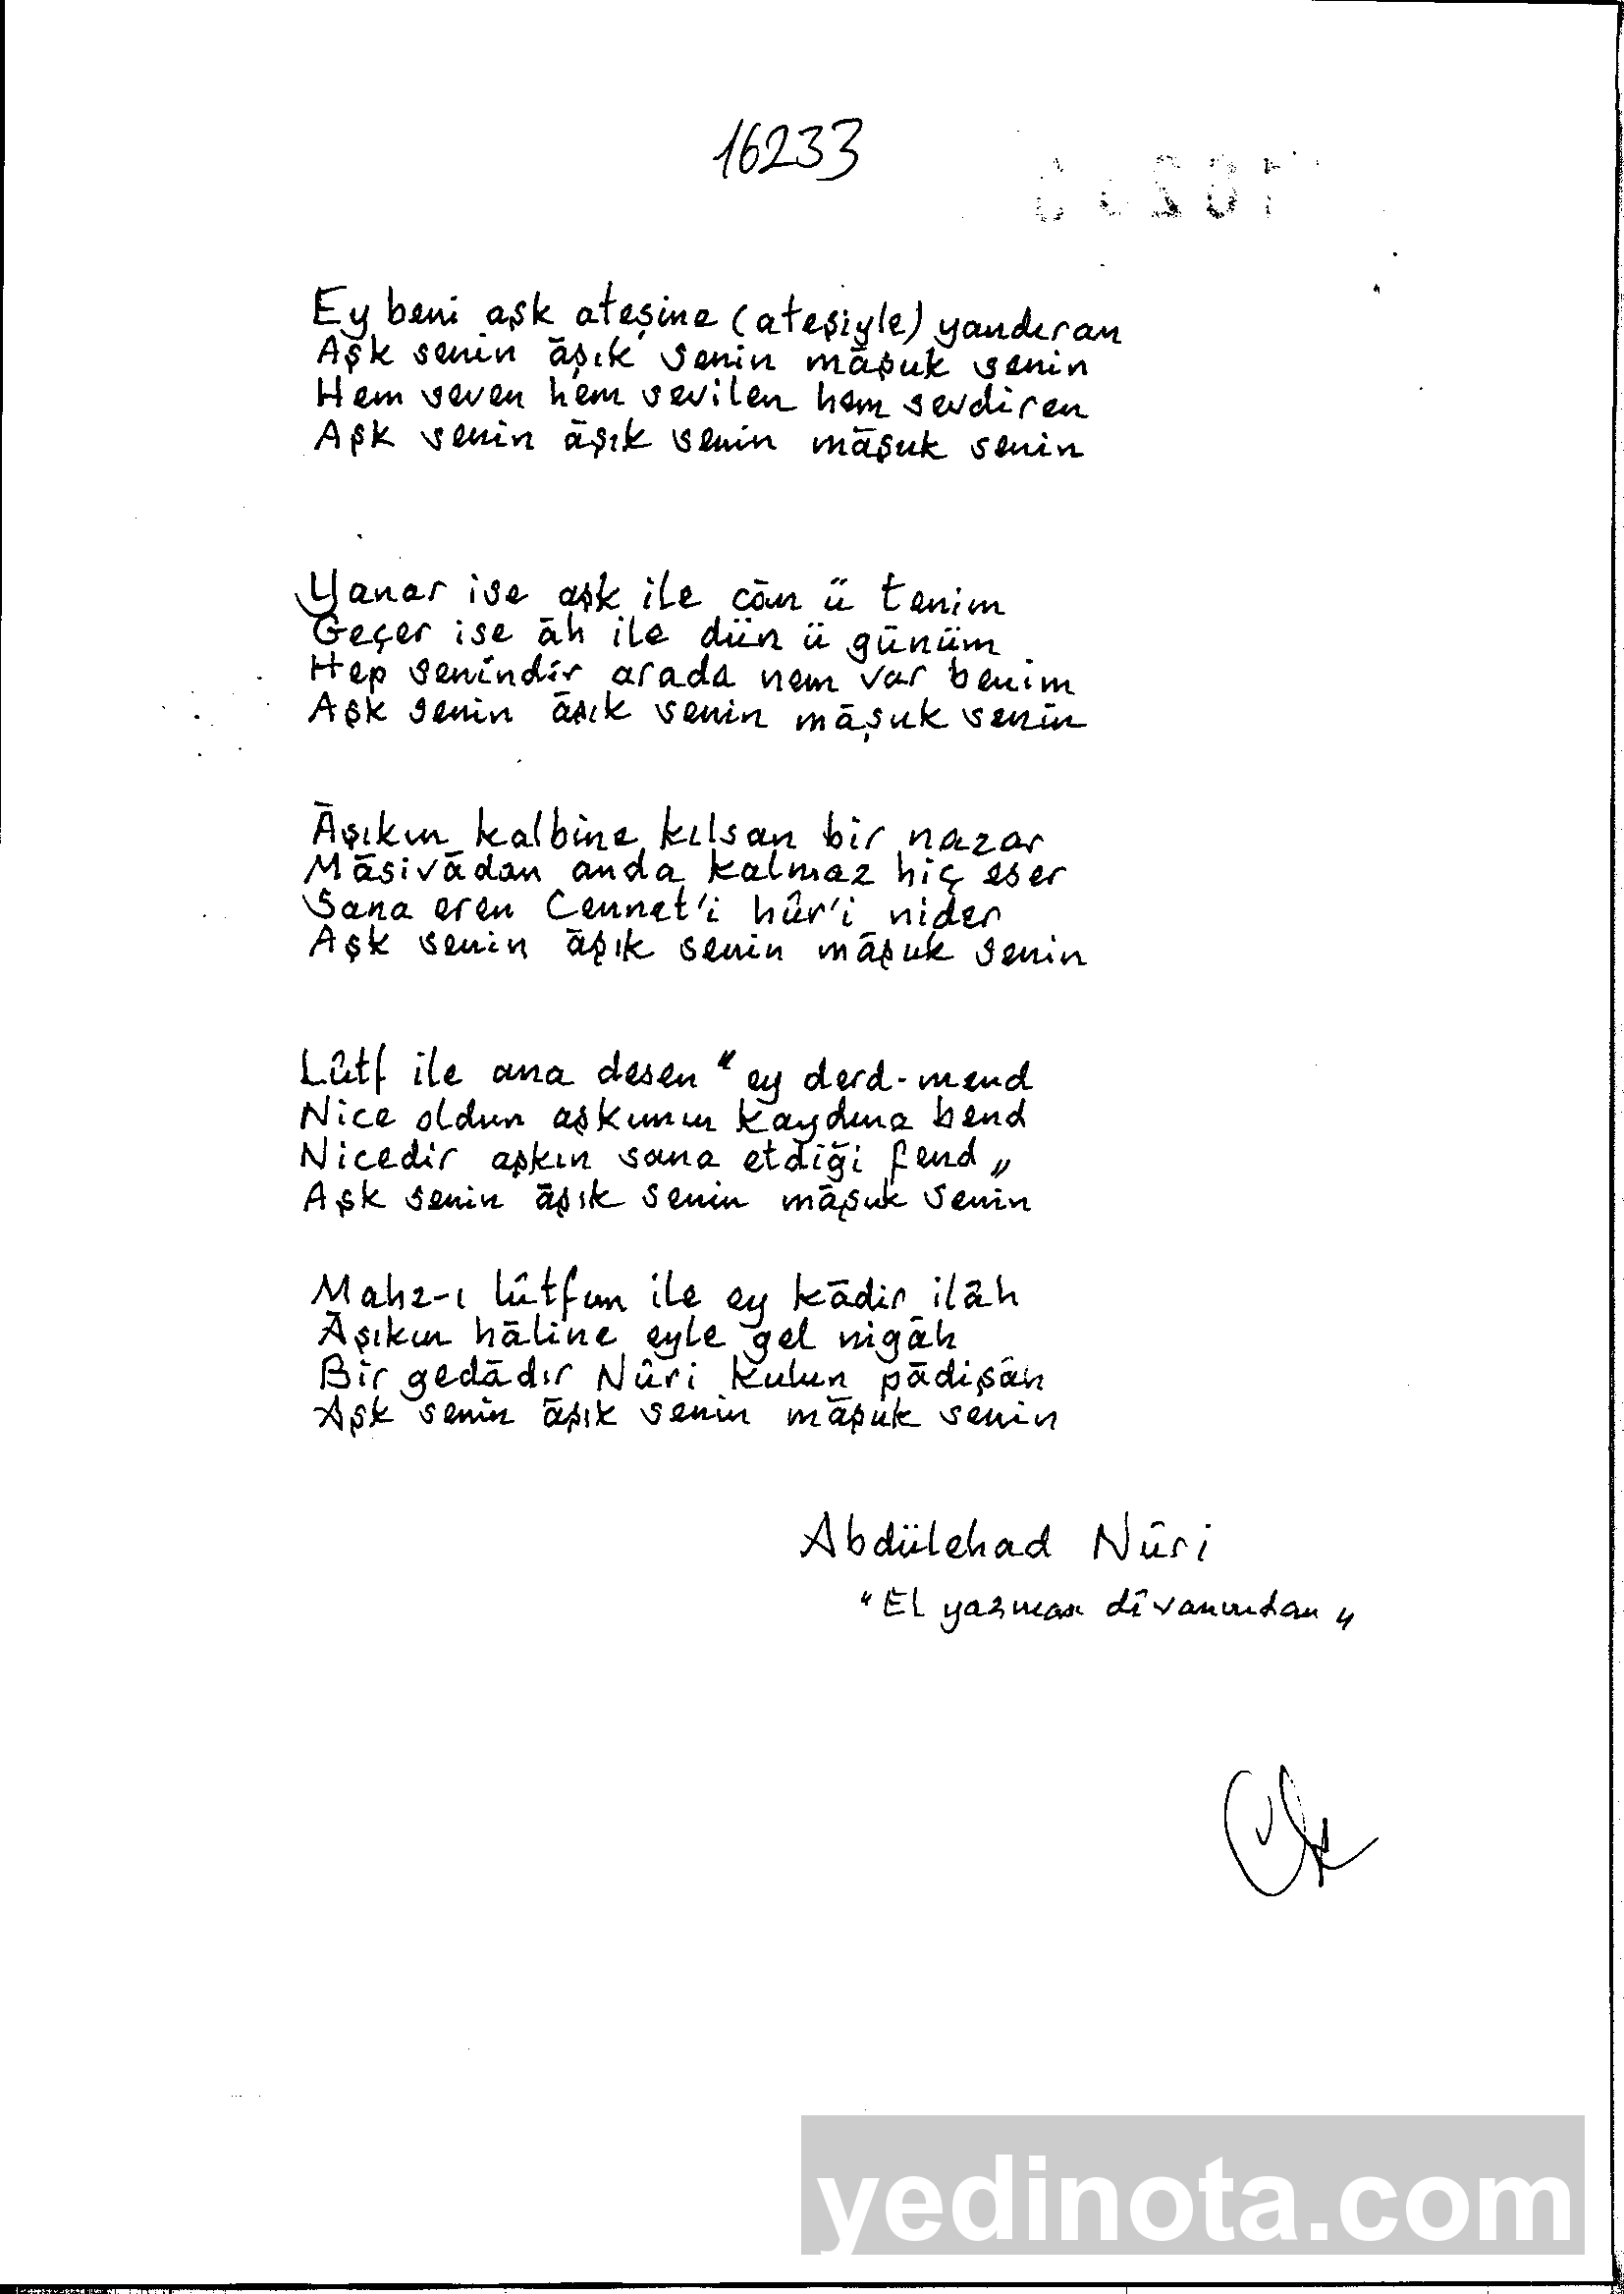 16233
Ey beni aşk ateşine (ateşiyle) yandıran
Aşk senin āşık senin māşuk senin
Hem seven hem sevilen hem sevdiren
Aşk senin āşık senin māşuk senin
Yanar ise aşk ile cān ü tenim
Geçer ise āh ile dün ü günüm
Hep senindir arada nem var benim
Aşk senin āşık senin māşuk senin
Āşıkın kalbine kılsan bir nazar
Māsivādan anda kalmaz hiç eser
Sana eren Cennet'i hûr'i nider
Aşk senin āşık senin māşuk senin
Lûtf ile ana desen "ey derd-mend
Nice oldun aşkımın kaydına bend
Nicedir aşkın sana etdiği fend"
Aşk senin āşık senin māşuk senin
Mahz-ı lûtfun ile ey kādir ilâh
Āşıkın hāline eyle gel nigâh
Bir gedādır Nûri kulun pādişâh
Aşk senin āşık senin māşuk senin
Abdülehad Nûri
"El yazması dîvanından"
yedinota.com